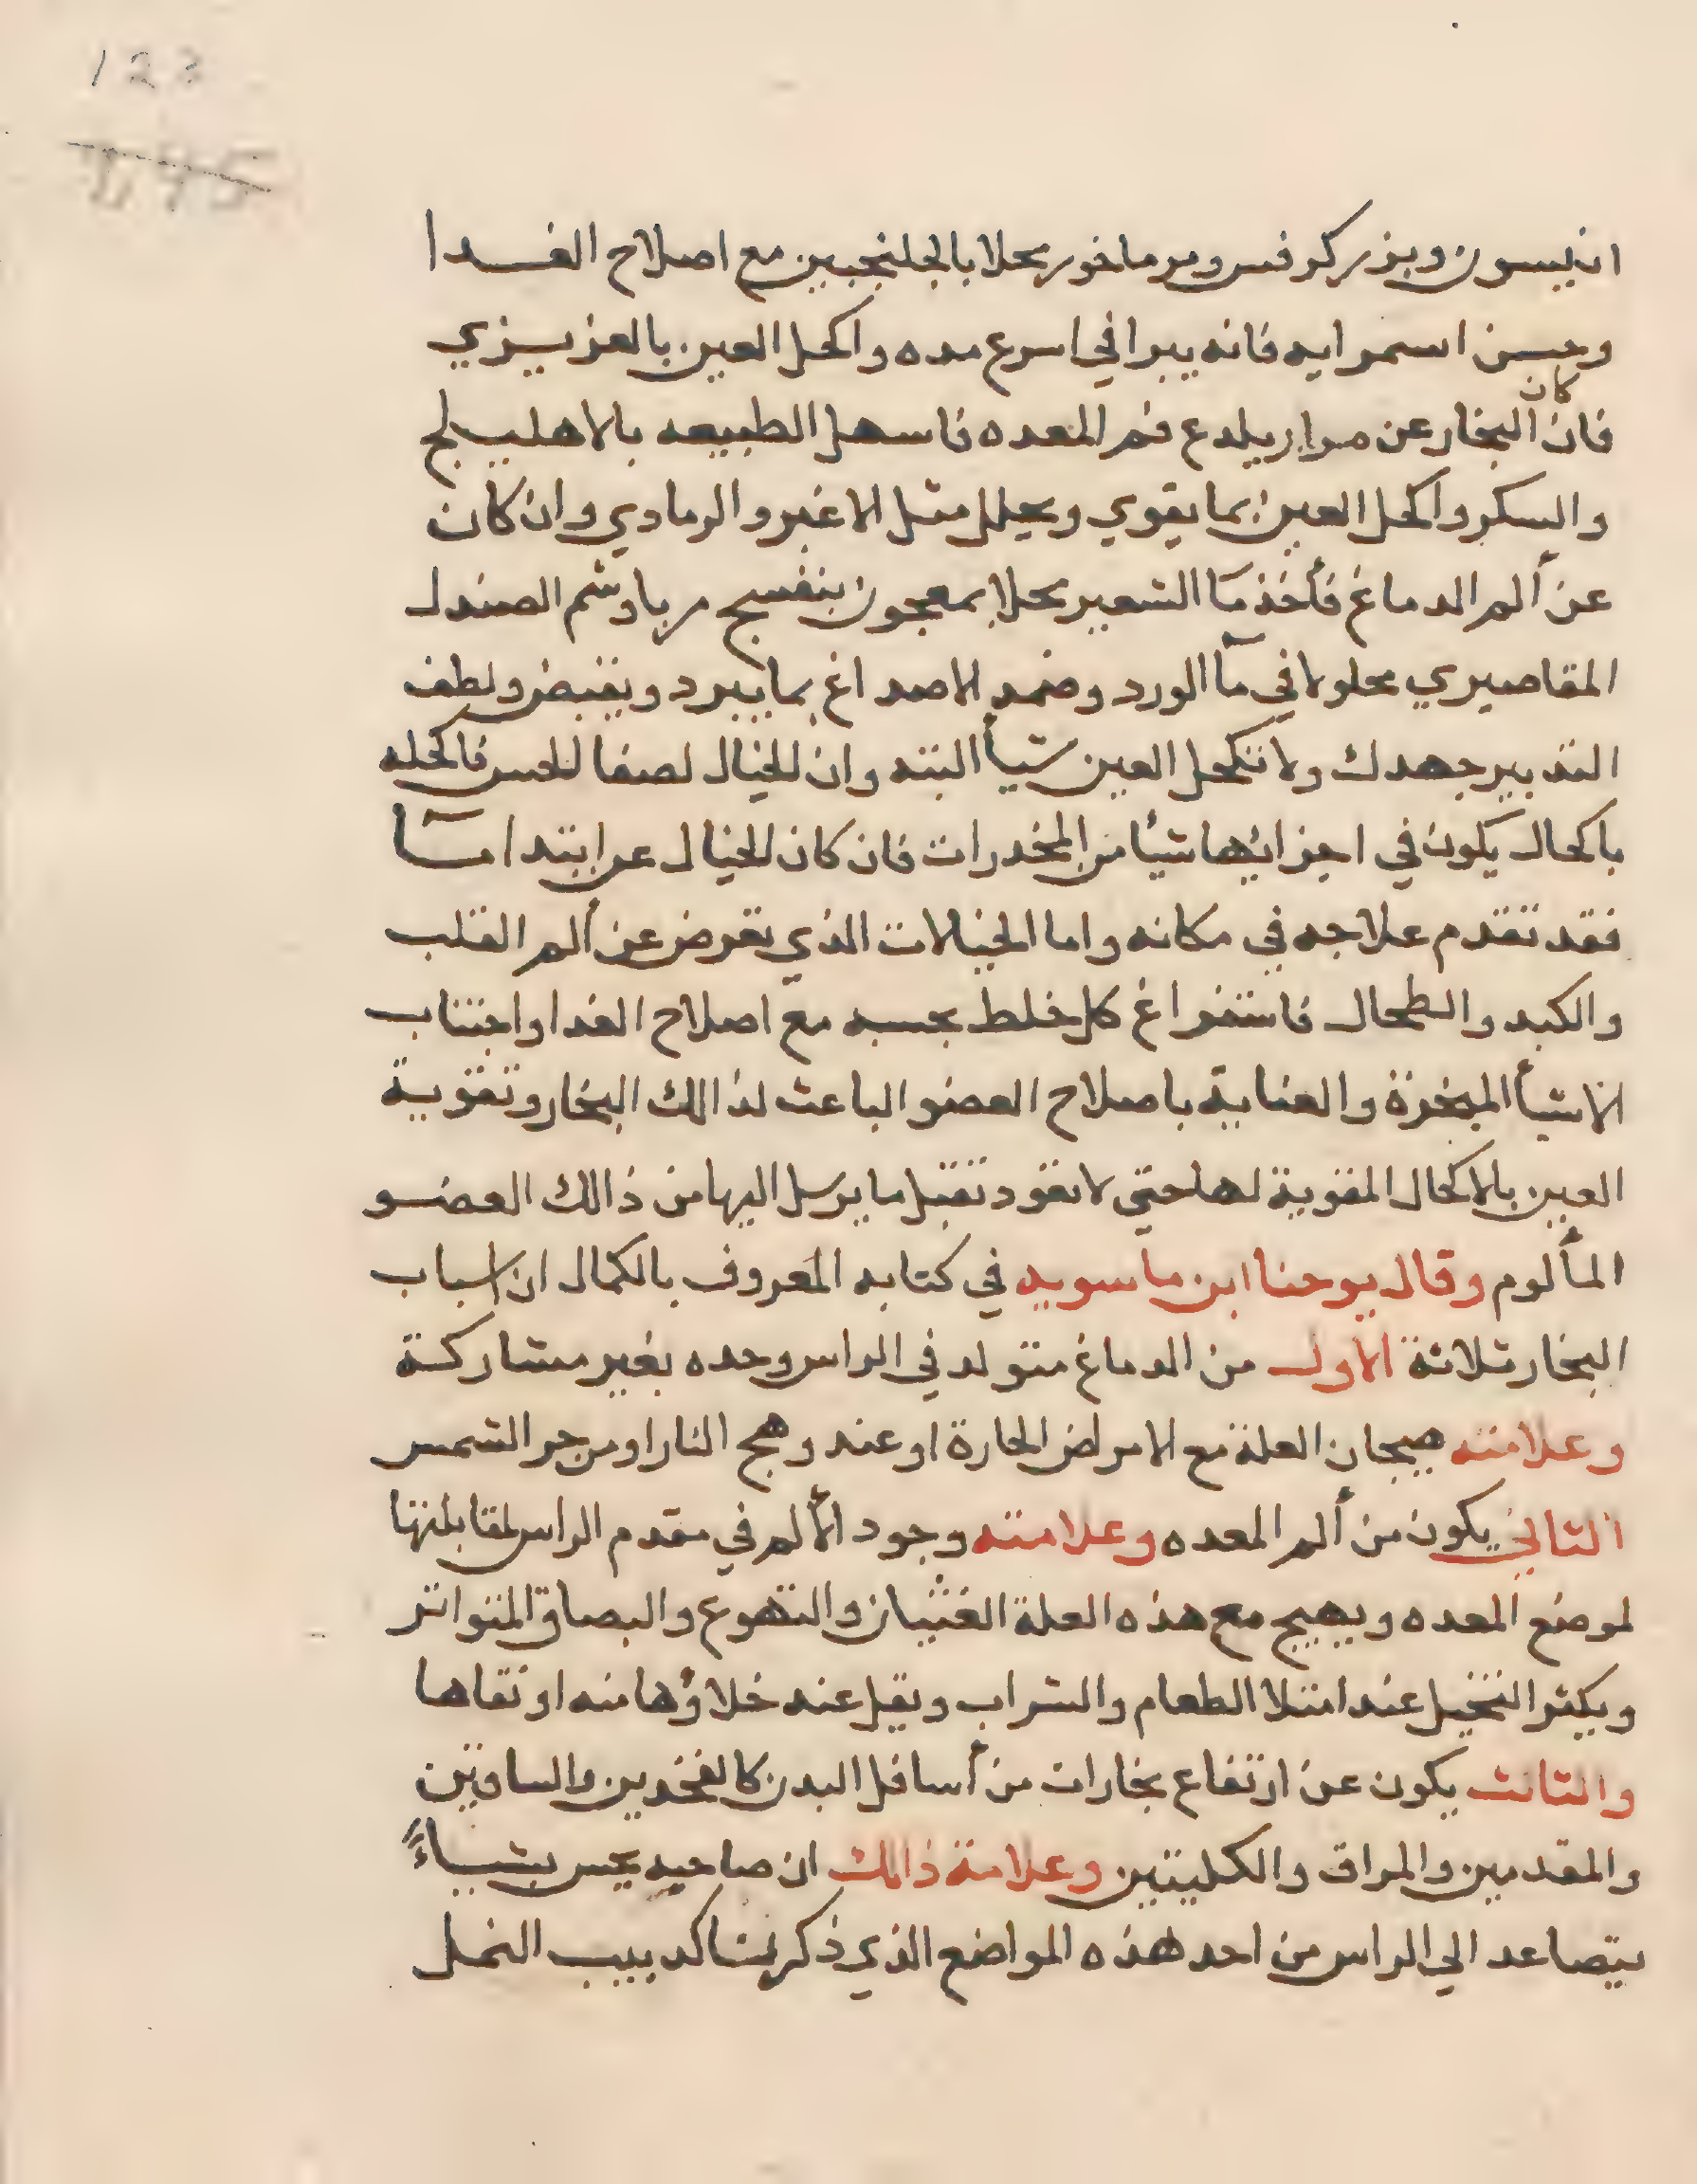 123
145
انيسون وبزر كرفس ومرماخور محلا بالجلنجبين مع اصلاح الغدا
وحسن اسمرايه فانه يبرا في اسرع مده واكحل العين بالعزيزي
كان
فان البخار عن مرار يلدع فم المعده فاسهل الطبيعه بالاهليلج
والسكر واكحل العين بما يقوي ويحلل مثل الاغبر والرمادي وان كان
عن ألم الدماغ فأخذ مآ الشعير محلا بمعجون بنفسج مربا وشم الصندل
المقاصيري محلولا في مآ الورد وضمد الاصداغ بما يبرد ويقبض ولطف
التدبير جهدك ولا تكحل العين شيأ البته وان للخيال لصفا للحس فاكحله
باكحال يكون في اجزائها شيأ من المخدرات فان كان للخيال عن ابتدا مآ
فقد تقدم علاجه في مكانه واما الخيالات الذي تعرض عن ألم القلب
والكبد والطحال فاستفراغ كل خلط بحسبه مع اصلاح الغدا واجتناب
الاشيأ المبخرة والعناية باصلاح العضو الباعث لذالك البخار وتقوية
العين بالاكحال المقوية لها حتي لا تعود تقبل ما يرسل اليها من ذالك العضو
المألوم وقال يوحنا ابن ماسويه في كتابه المعروف بالكمال ان اسباب
البخار ثلاثة الاول من الدماغ متولد في الراس وحده بغير مشاركة
وعلامته هيجان العلة مع الامراض الحارة او عند وهج النار او من حر الشمس
الثاني يكون من ألم المعده وعلامته وجود الألم في مقدم الراس لمقابلتها
لموضع المعده ويهيج مع هذه العلة الغثيان والتهوع والبصاق المتواتر
ويكثر التخيل عند امتلا الطعام والشراب ويقل عند خلاؤها منه او نقاها
والثالث يكون عن ارتفاع بخارات من أسافل البدن كالفخدين والساقين
والمقدمين والمراق والكليتين وعلامة ذالك ان صاحبه يحس بشياءً
يتصاعد الي الراس من احد هذه المواضع الذي ذكرنا كدبيب النمل